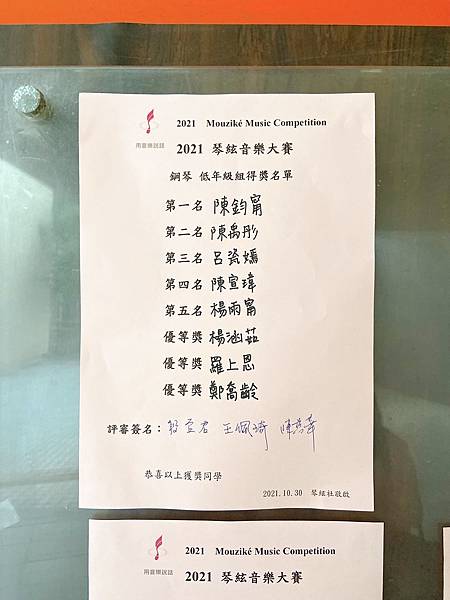 2021 Mouziké Music Competition
用音樂說話
2021 琴絃音樂大賽
鋼琴 低年級組得獎名單
第一名 陳鈞甯
第二名 陳禹彤
第三名 呂瓷嫣
第四名 陳宣瑋
第五名 楊雨甯
優等獎 楊涵茹
優等獎 羅上恩
優等獎 鄭喬齡
評審簽名： 王佩琦
恭喜以上獲獎同學
2021.10.30 琴絃社敬啟
2021 Mouziké Music Competition
用音樂說話
2021 琴絃音樂大賽